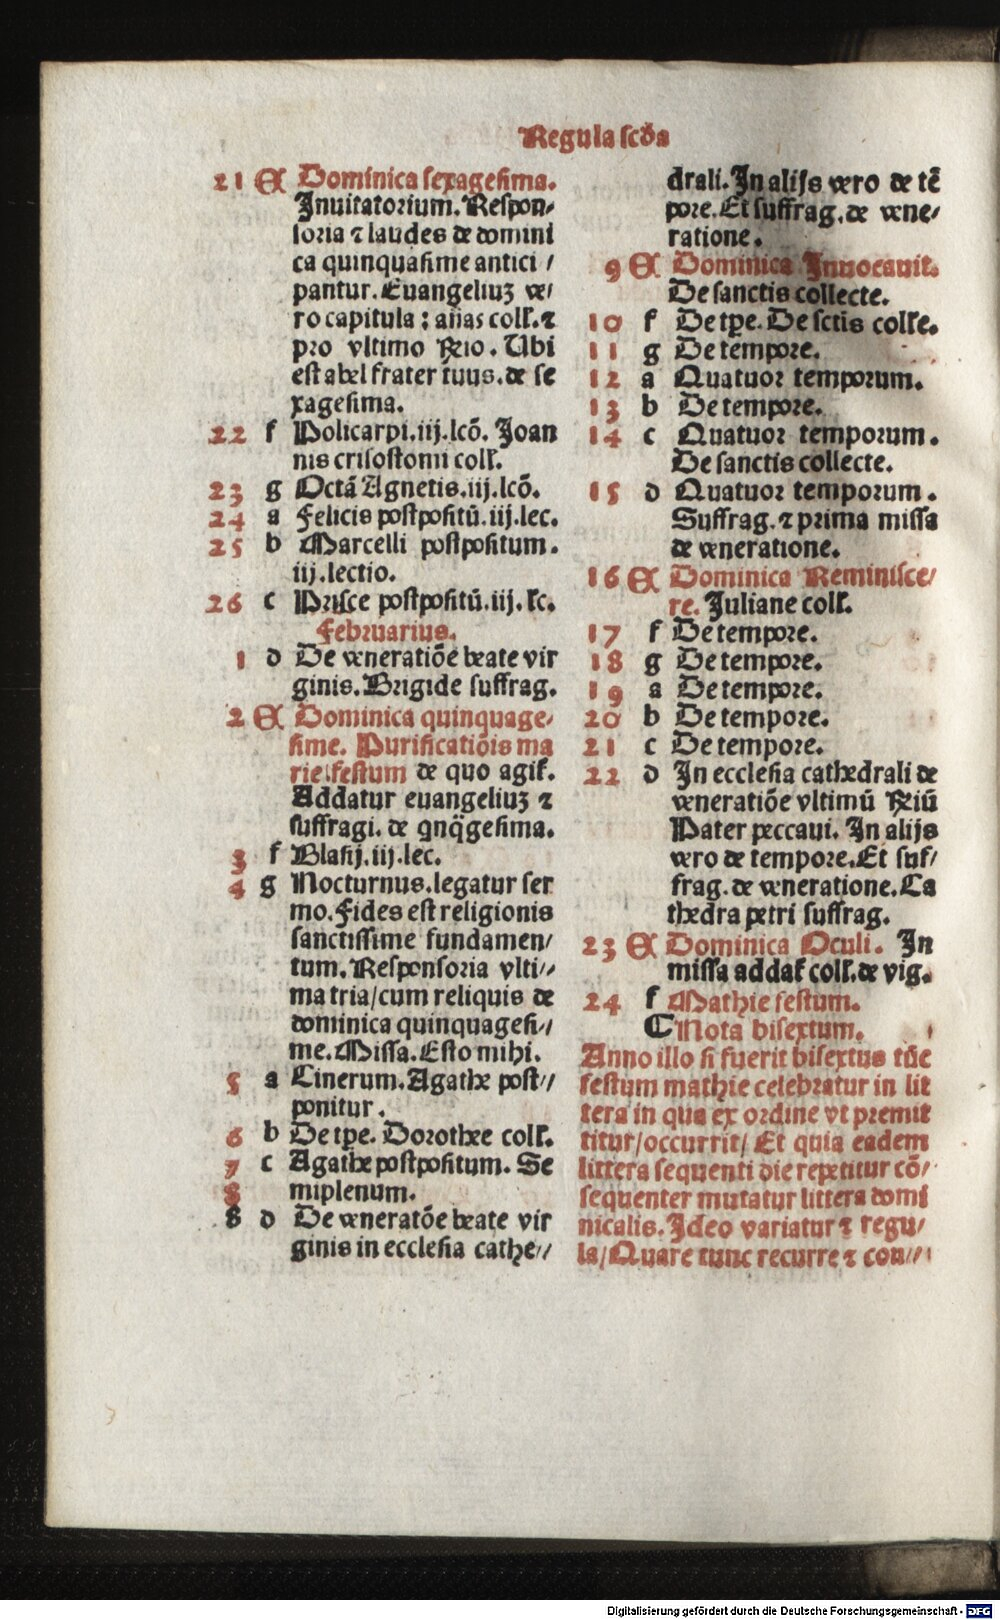 Regula scďa
21 E Dominica sexagesima.
Inuitatorium. Respon⸗
soria ⁊ laudes de domini
ca quinquasime antici /
pantur. Euangeliuʒ ve/
ro capitula : añas coll̃. ⁊
pro vltimo ℟rio. Ubi
est abel frater tuus. de se
xagesima.
22 f Policarpi. iij. lcõ. Joan
nis crisostomi coll̃.
23 g Octã Agnetis. iij. lcõ.
24 a Felicis postpositũ. iij. lec.
25 b Marcelli postpositum.
iij. lectio.
26 c Prisce postpositũ. iij. lc̃.
Februarius.
1 d De veneratiõe beate vir
ginis. Brigide suffrag.
2 E Dominica quinquage/
sime. Purificatiõis ma
rie festum de quo agit̃.
Addatur euangeliuʒ ⁊
suffragi. de qnq̃gesima.
3 f Blasij. iij. lec.
4 g Nocturnus. legatur ser
mo. Fides est religionis
sanctissime fundamen/
tum. Responsoria vlti//
ma tria/cum reliquis de
dominica quinquagesi-/
me. Missa. Esto mihi.
5 a Cinerum. Agathe post//
ponitur.
6 b De tꝑe. Dorothee coll̃.
7 c Agathe postpositum. Se
8 miplenum.
8 d De veneratõe beate vir
ginis in ecclesia cathe//
drali. In alijs vero de tẽ
pore. Et suffrag. de vene/
ratione.
9 E Dominica Inuocauit.
De sanctis collecte.
10 f De tꝑe. De sctĩs coll̃e.
11 g De tempore.
12 a Quatuor temporum.
13 b De tempore.
14 c Quatuor temporum.
De sanctis collecte.
15 d Quatuor temporum.
Suffrag. ⁊ prima missa
de veneratione.
16 E Dominica Reminisce/
re. Juliane coll̃.
17 f De tempore.
18 g De tempore.
19 a De tempore.
20 b De tempore.
21 c De tempore.
22 d In ecclesia cathedrali de
veneratiõe vltimũ ℟riũ
Pater peccaui. In alijs
vero de tempore. Et suf/
frag. de veneratione. Ca
thedra petri suffrag.
23 E Dominica Oculi. In
missa addat̃ coll̃. de vig.
24 f Mathie festum.
¶ Nota bisextum.
Anno illo si fuerit bisextus tũc
festum mathie celebratur in lit
tera in qua ex ordine vt premit
titur/occurrit/ Et quia eadem
littera sequenti die repetitur cõ/
sequenter mutatur littera domi
nicalis. Ideo variatur ⁊ regu/
la/Quare tunc recurre ⁊ con//
Digitalisierung gefördert durch die Deutsche Forschungsgemeinschaft - DFG